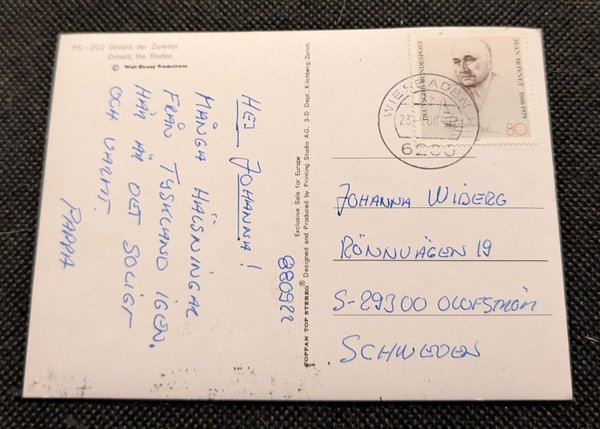 PS-202 Donald, der Zureiter
Donald, the Rodeo
© Walt Disney Productions
880922
HEJ JOHANNA!
MÅNGA HÄLSNINGAR
FRÅN TYSKLAND IGEN.
HÄR ÄR DET SOLIGT
OCH VARMT.
PAPPA
TOPPAN TOP STEREO® Designed and Produced by Printing Studio AG, 3-D Dept., Kilchberg-Zürich
Exclusive Sale for Europe
DEUTSCHE BUNDESPOST
JEAN MONNET 1888-1979
80
WIESBADEN
JOHANNA WIBERG
RÖNNVÄGEN 19
S-29300 OLOFSTRÖM
SCHWEDEN